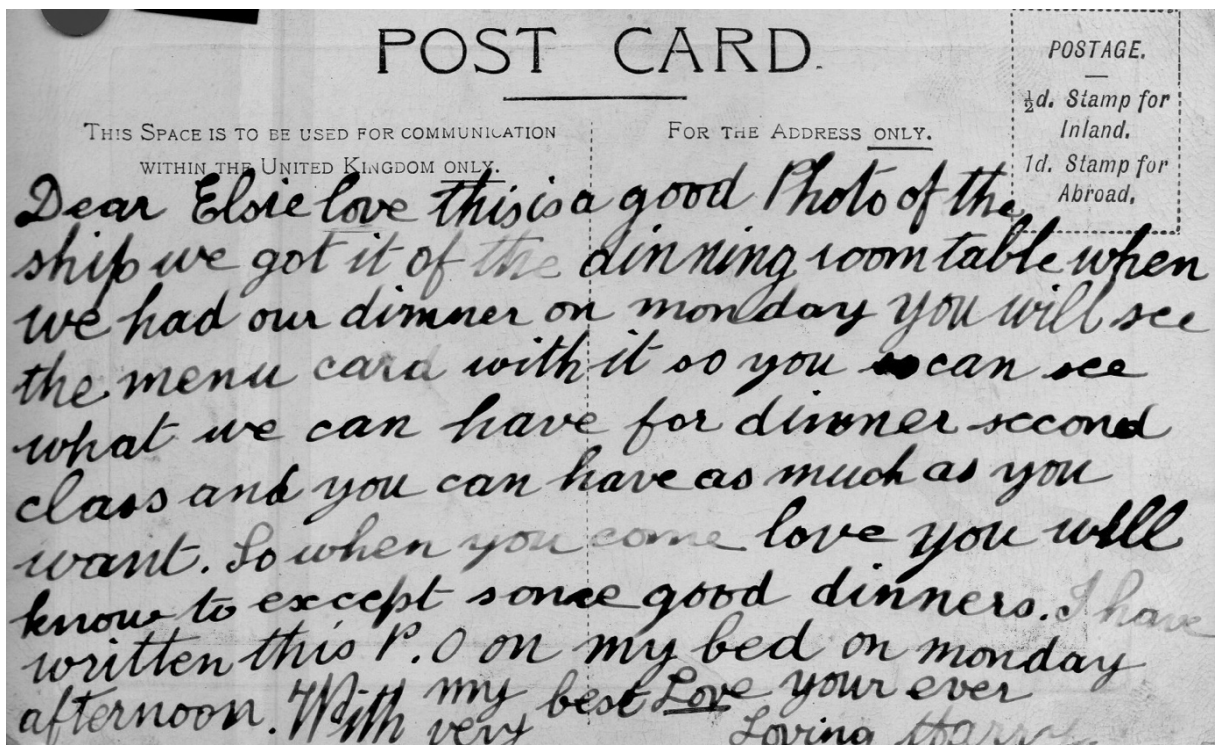 POST CARD.
POSTAGE.
½d. Stamp for
Inland.
1d. Stamp for
Abroad.
THIS SPACE IS TO BE USED FOR COMMUNICATION
WITHIN THE UNITED KINGDOM ONLY.
FOR THE ADDRESS ONLY.
Dear Elsie love this is a good Photo of the
ship we got it of the dinning room table when
we had our dinner on monday you will see
the menu card with it so you can see
what we can have for dinner second
class and you can have as much as you
want. So when you come love you will
know to except some good dinners. I have
written this P.O on my bed on monday
afternoon. With my best Love your ever
very Loving Harry